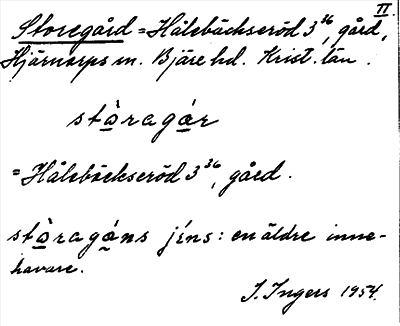 II.
Storegård = Hålebäckseröd 3³⁶, gård,
Hjärnarps sn. Bjäre hd. Krist. län.
stòragár
= Hålebäckseröd 3³⁶, gård.
stòragáns jíns: en äldre inne-
havare.
I. Ingers 1954.